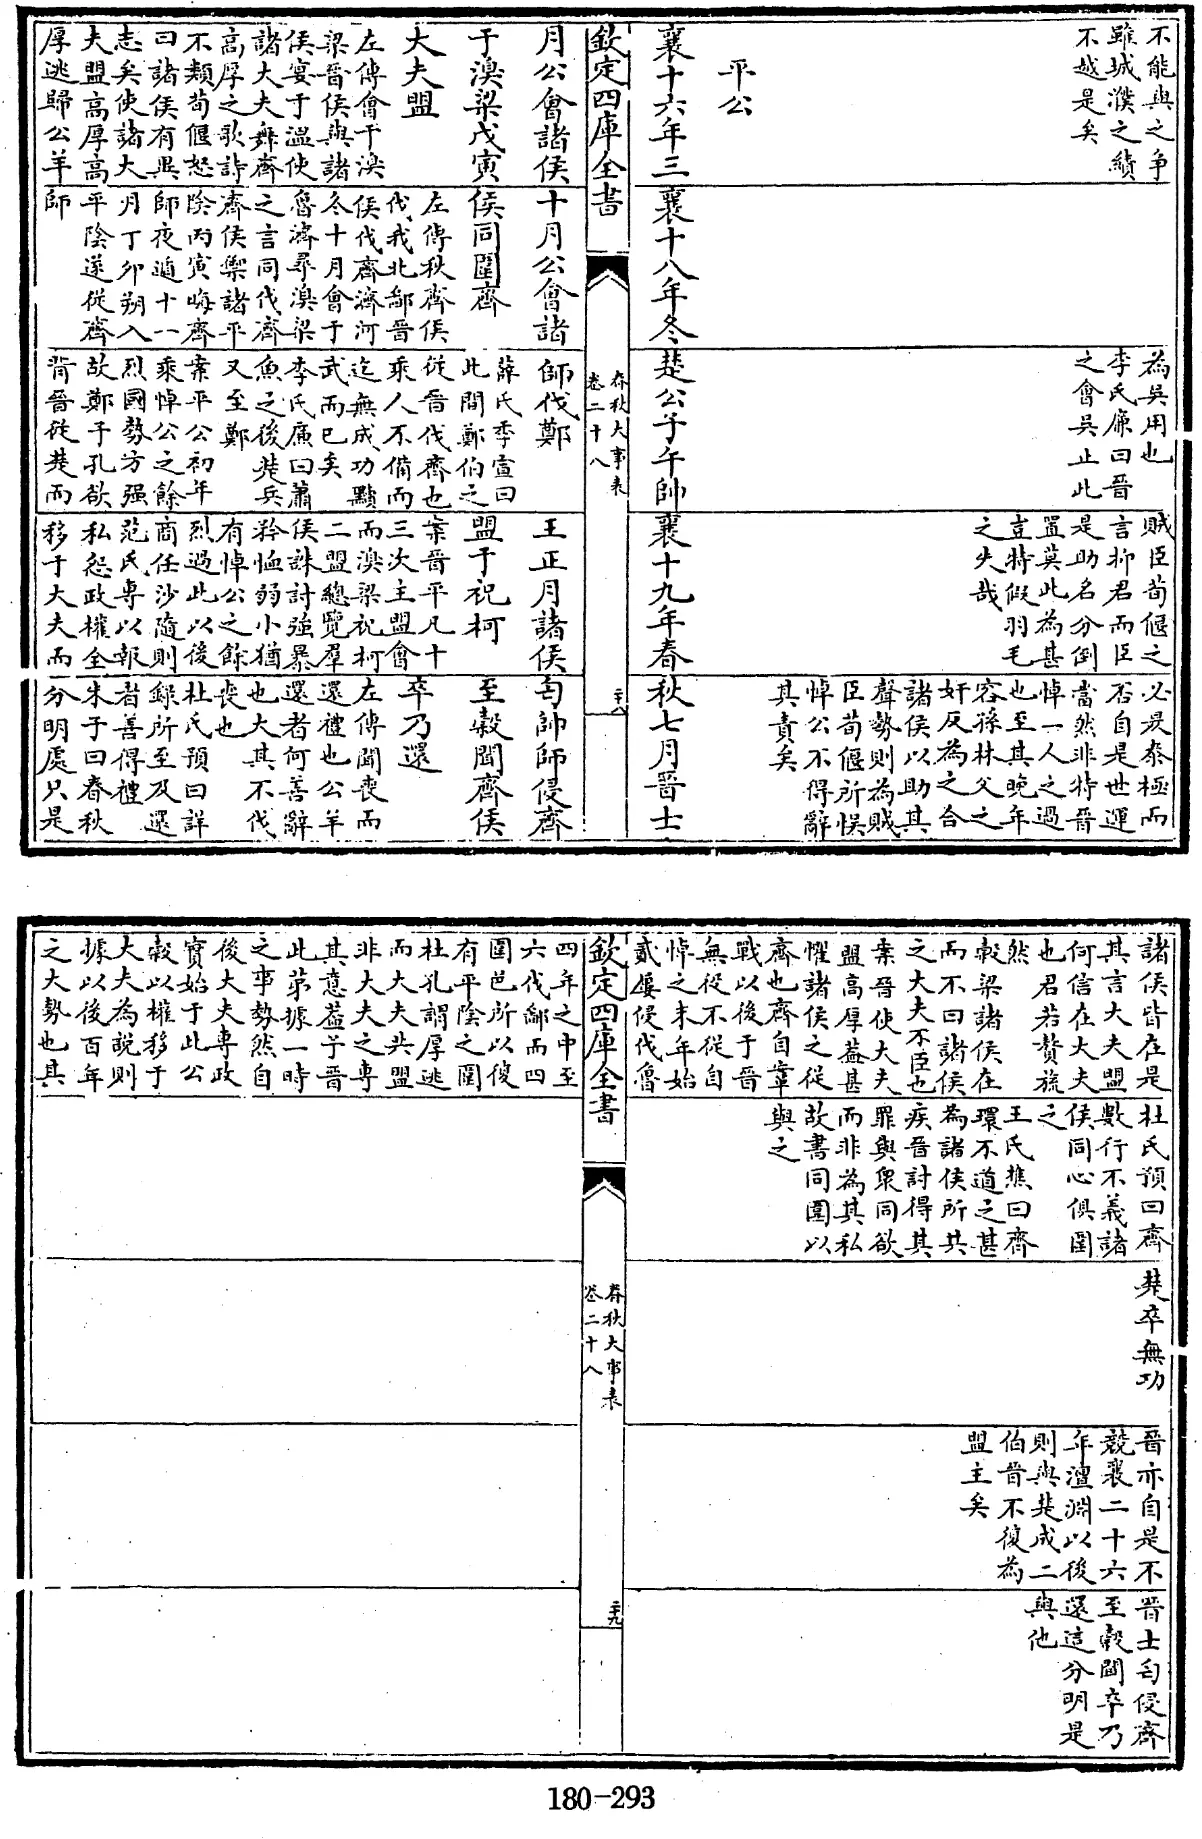 不能與之爭
雖城濮之績
不越是矣
平公
襄十六年三
襄十八年冬
為吳用也
李氏廉曰晉
之會吳止此
楚公子午帥
賊臣荀偃之
言抑君而臣
是助名分倒
置莫此為甚
豈特假羽毛
之失哉
襄十九年春
必是泰極而
否自是世運
當然非特晉
悼一人之過
也至其晚年
容孫林父之
奸反為之合
諸侯以助其
聲勢則為賊
臣荀偃所悞
悼公不得辭
其責矣
秋七月晉士
欽定四庫全書
春秋大事表
卷二十八
二十八
月公會諸侯
于湨梁戊寅
大夫盟
左傳會于湨
梁晉侯與諸
侯宴于溫使
諸大夫舞齊
高厚之歌詩
不類荀偃怒
曰諸侯有異
志矣使諸大
夫盟高厚高
厚逃歸公羊
十月公會諸
侯同圍齊
左傳秋齊侯
伐我北鄙晉
侯伐齊濟河
冬十月會于
魯濟尋湨梁
之言同伐齊
齊侯禦諸平
陰丙寅晦齊
師夜遁十一
月丁卯朔入
平陰遂從齊
師
師伐鄭
薛氏季宣曰
此間鄭伯之
從晉伐齊也
乘人不備而
迄無成功黷
武而已矣
李氏廉曰蕭
魚之後楚兵
又至鄭
案平公初年
乘悼公之餘
烈國勢方强
故鄭子孔欲
背晉從楚而
王正月諸侯
盟于祝柯
案晉平凡十
三次主盟會
而湨梁祝柯
二盟總覽羣
侯誅討強暴
矜恤弱小猶
有悼公之餘
烈過此以後
商任沙隨則
范氏專以報
私怨政權全
移于大夫而
匄帥師侵齊
至穀聞齊侯
卒乃還
左傳聞喪而
還禮也公羊
還者何善辭
也大其不伐
喪也
杜氏預曰詳
錄所至及還
者善得禮
朱子曰春秋
分明處只是
諸侯皆在是
其言大夫盟
何信在大夫
也君若贅旒
然
穀梁諸侯在
而不曰諸侯
之大夫不臣也
案晉使大夫
盟高厚蓋甚
懼諸侯之從
齊也齊自鞌
戰以後于晉
無從不從自
悼之末年始
貳屢侵伐魯
杜氏預曰齊
數行不義諸
侯同心俱圍
之
王氏樵曰齊
環不道之甚
為諸侯所共
疾晉討得其
罪與衆同欲
而非為其私
故書同圍以
與之
楚卒無功
晉亦自是不
競襄二十六
年澶淵以後
則與楚成二
伯晉不復為
盟主矣
晉士匄侵齊
至穀聞卒乃
還這分明是
與他
欽定四庫全書
春秋大事表
卷二十八
二十九
四年之中至
六伐鄙而四
圍邑所以復
有平陰之圍
杜孔謂厚逃
而大夫共盟
非大夫之專
其意蓋予晉
此第據一時
之事勢然自
後大夫專政
實始于此公
穀以權移于
大夫為說則
據以後百年
之大勢也其
180-293